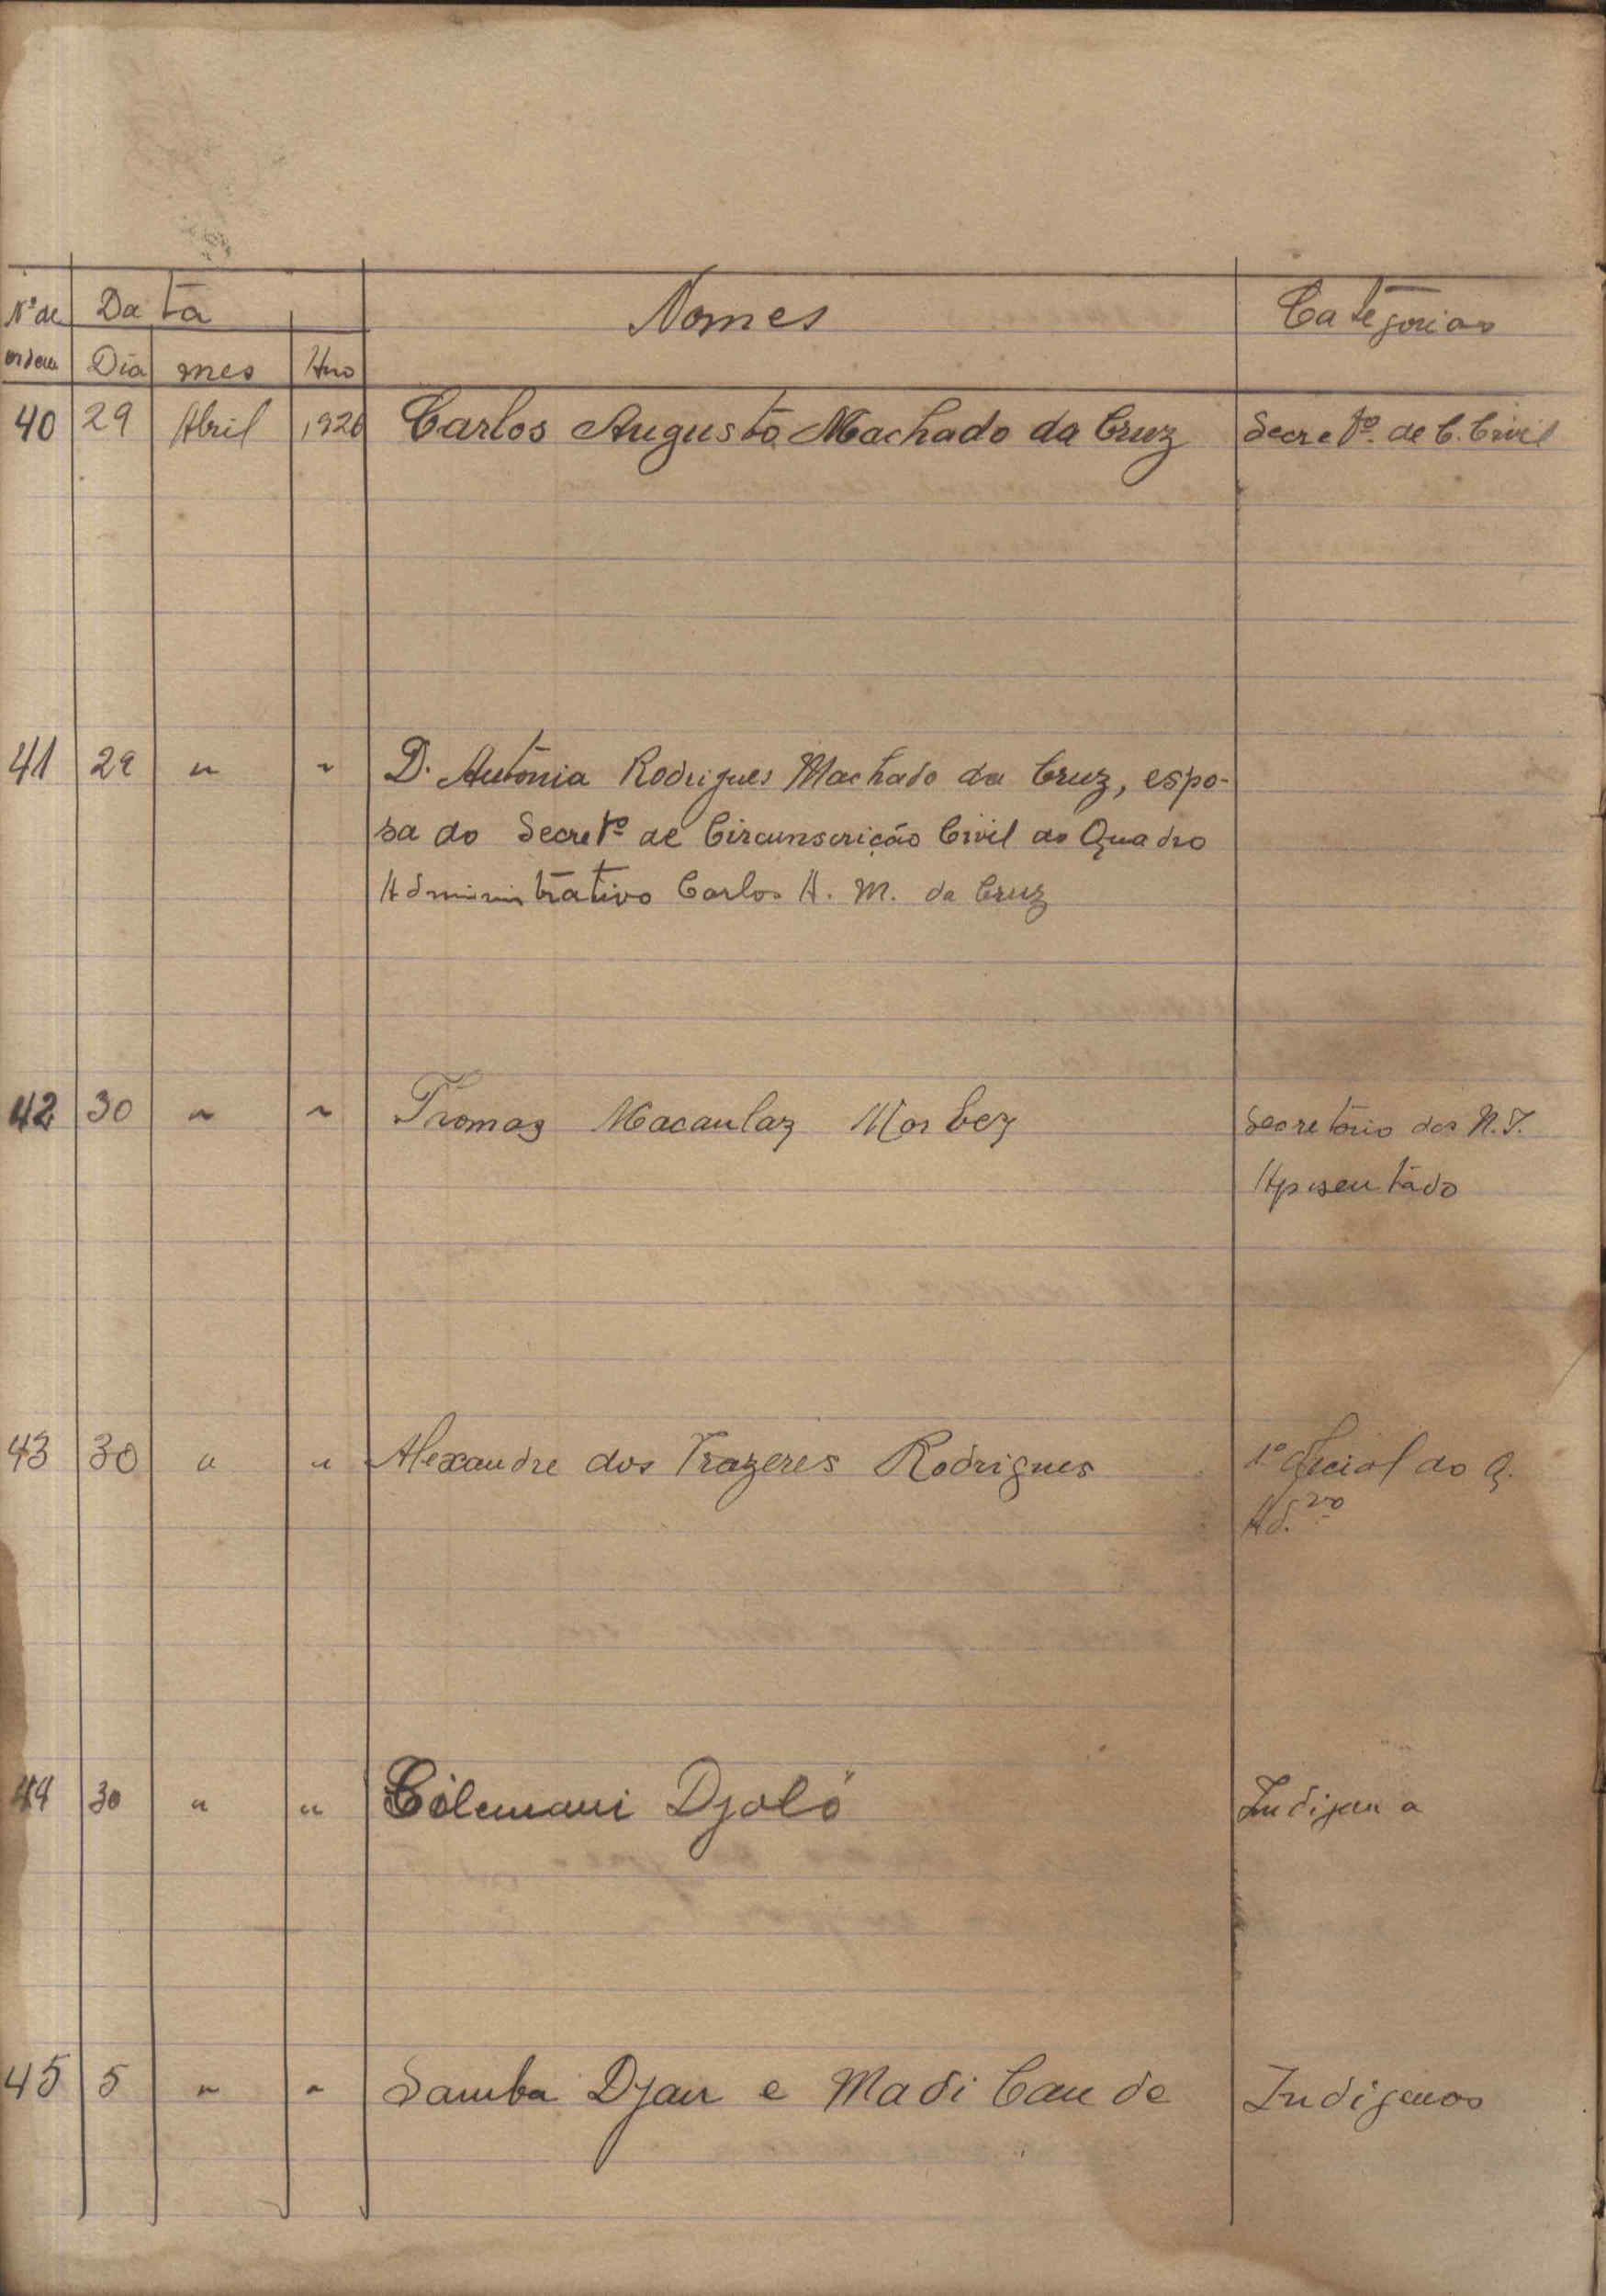 Nº de Data Nomes Categorias
ordem Dia mes Ano
40 29 Abril 1926 Carlos Augusto Machado da Cruz Secretº. de C. Civil
41 29 " " D. Antónia Rodrigues Machado da Cruz, espo-
sa do Secretº de Circunscrição Civil do Quadro
Administrativo Carlos A. M. da Cruz
42 30 " " Tomas Macaulay Secretário dos N. I.
Aposentado
43 30 " " Alexandre dos Prazeres Rodrigues 1º Oficial do Q.
Ad.vo
44 30 " " Djaló Indigena
45 5 " " Samba Djau e Madi Cande Indigenas